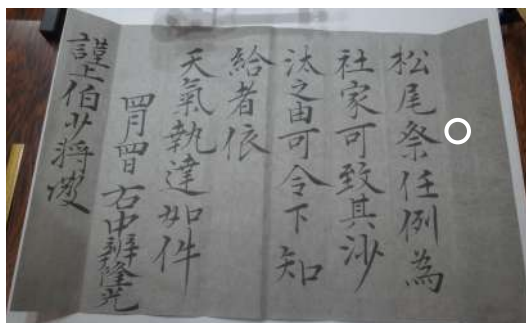 松尾祭任例為
社家可致其沙
汰之由可令下知
給者依
天氣執達如件
四月四日 右中辨隆光
謹上伯少将殿